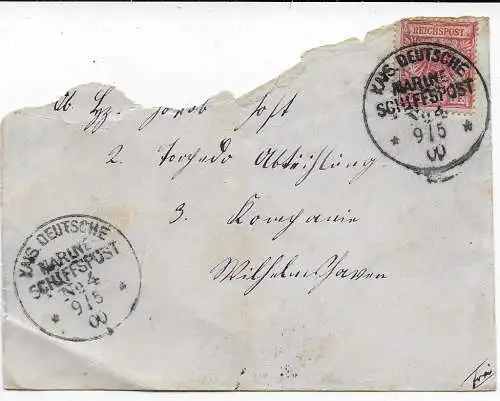 REICHSPOST
KAIS. DEUTSCHE
MARINE
SCHIFFSPOST
No 4
9/5
00
Jacob
2. Torpedo Abteihlung
3. Kompanie
Wilhelmshaven
KAIS. DEUTSCHE
MARINE
SCHIFFSPOST
No 4
9/5
00